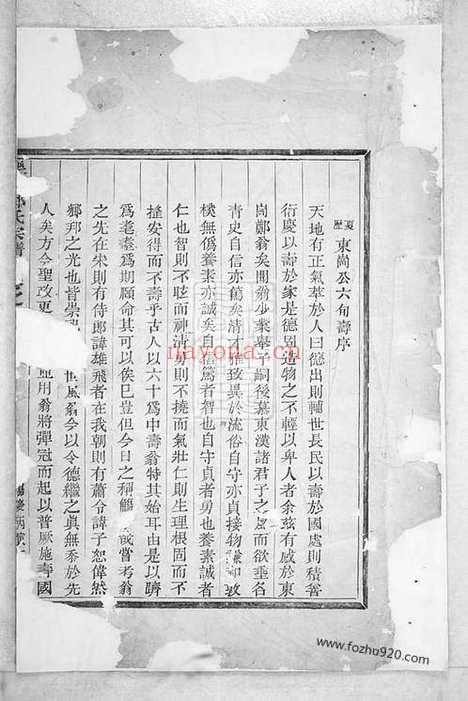 夏歷
東崗公六旬壽序
天地有正氣萃於人曰德出則輔世長民以壽於國處則積善
衍慶以壽於家是德固造物之不輕以畀人者余玆有感於東
崗鄭翁矣聞翁少業舉子嗣後慕東漢諸君子之為而欲垂名
青史自信亦篤矣清才雅致異於流俗自守亦貞接物
樸無僞養素亦誠矣自信篤者智也自守貞者勇也養素誠者
仁也智則不眩而神清勇則不撓而氣壯仁則生理根固而不
搖安得而不壽乎古人以六十爲中壽翁特其始耳由是以躋
爲耄耋爲期頤命其可以俟巳豈但今日之稱觴哉嘗考翁
之先在宋則有侍郞諱雄飛者在我朝則有蕭令諱子恕偉然
鄉邦之光也皆崇 世風翁今以令德繼之眞無忝於先
人矣方今聖 改更 用翁將彈冠而起以普厥施壽國
氏宗譜
nayona.cn
www.fozhu920.com